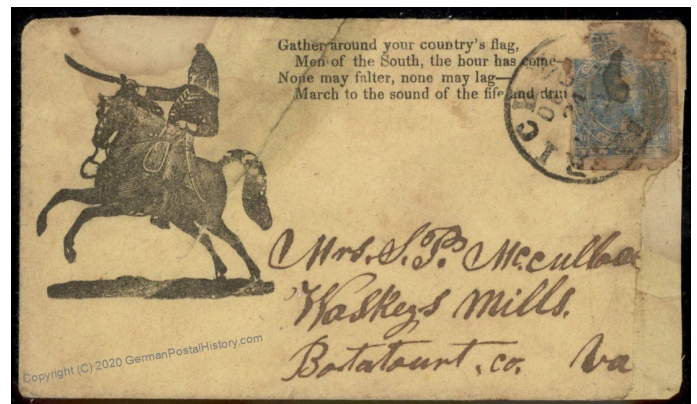 Gather around your country's flag,
Men of the South, the hour has come—
None may falter, none may lag—
March to the sound of the fife and drum
DEC
21
Mrs. S. P. McCulloc
Waskeys Mills.
Botatourt, co. Va
Copyright (C) 2020 GermanPostalHistory.com